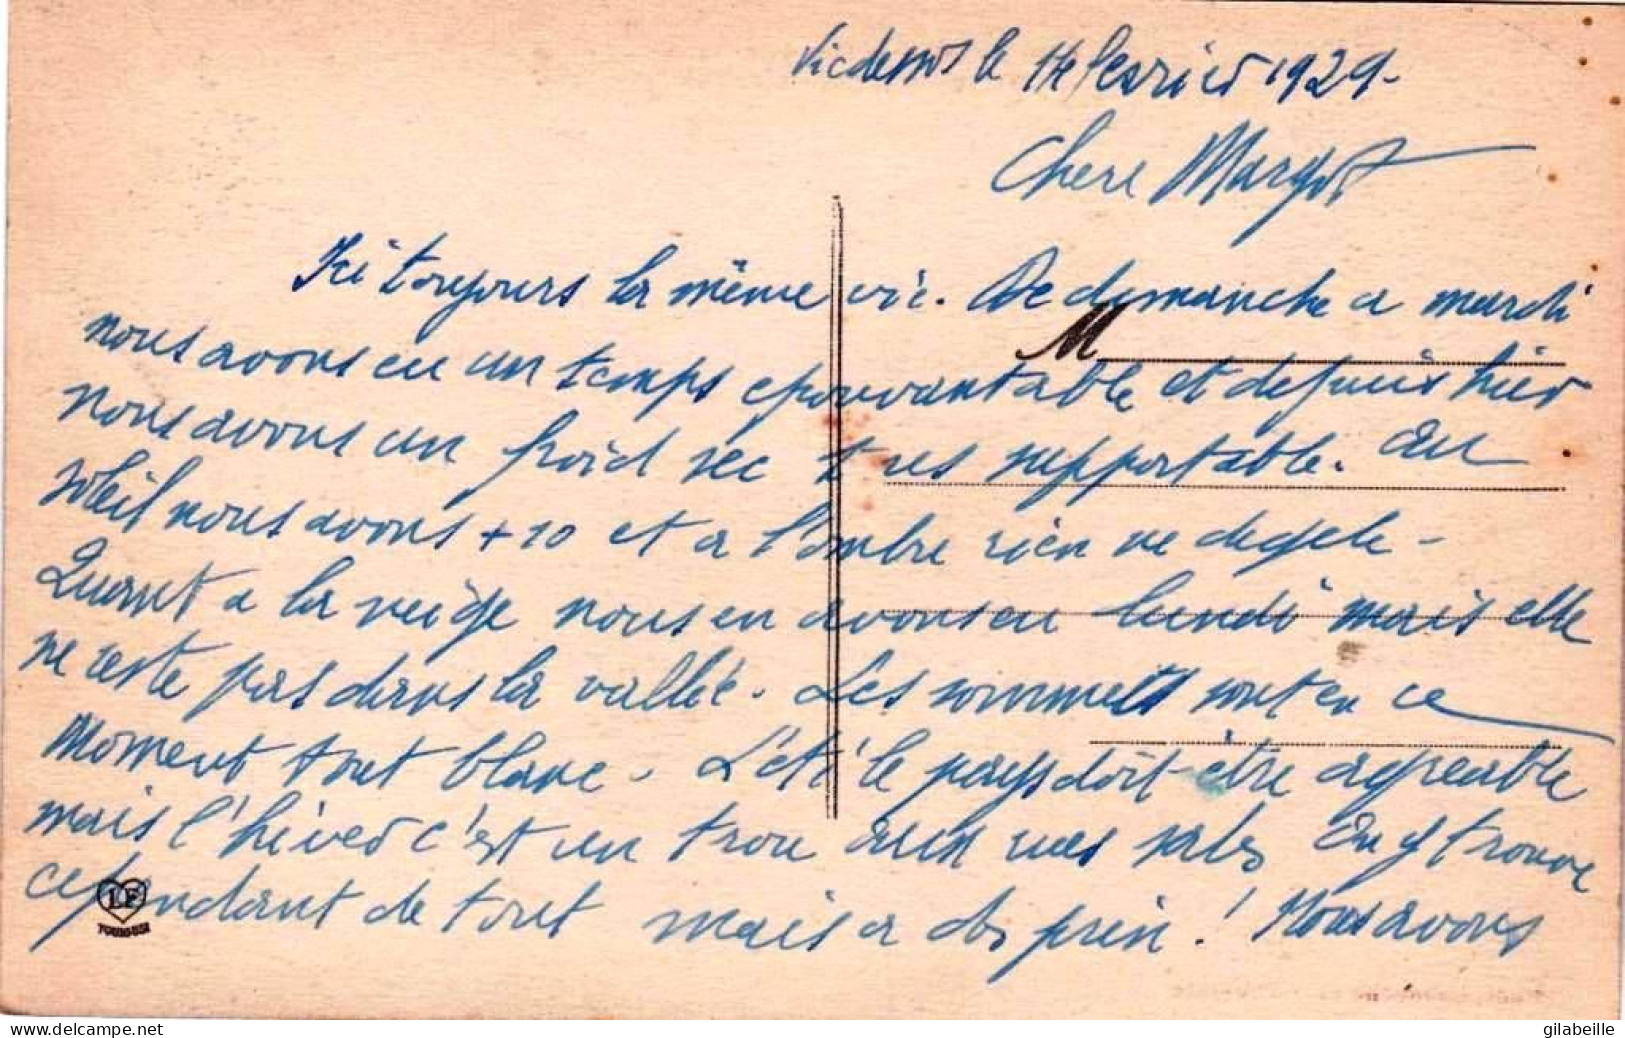 Vicdessos le 14 fevrier 1929-
Chere Margot
Ici toujours la même vie. De dimanche a mardi
M
nous avons eu un temps epouvantable et depuis hier
nous avons un froid sec tres supportable. Au
soleil nous avons +10 et a l'ombre rien ne degele -
Quant a la neige nous en avons eu lundi mais elle
ne reste pas dans la vallée. Les sommets sont en ce
Moment tout blanc. L'été le pays doit être agreable
mais l'hiver c'est un trou aux rues sales On y trouve
cependant de tout mais a des prix! Nous avons
LF
TOULOUSE
gilabeille